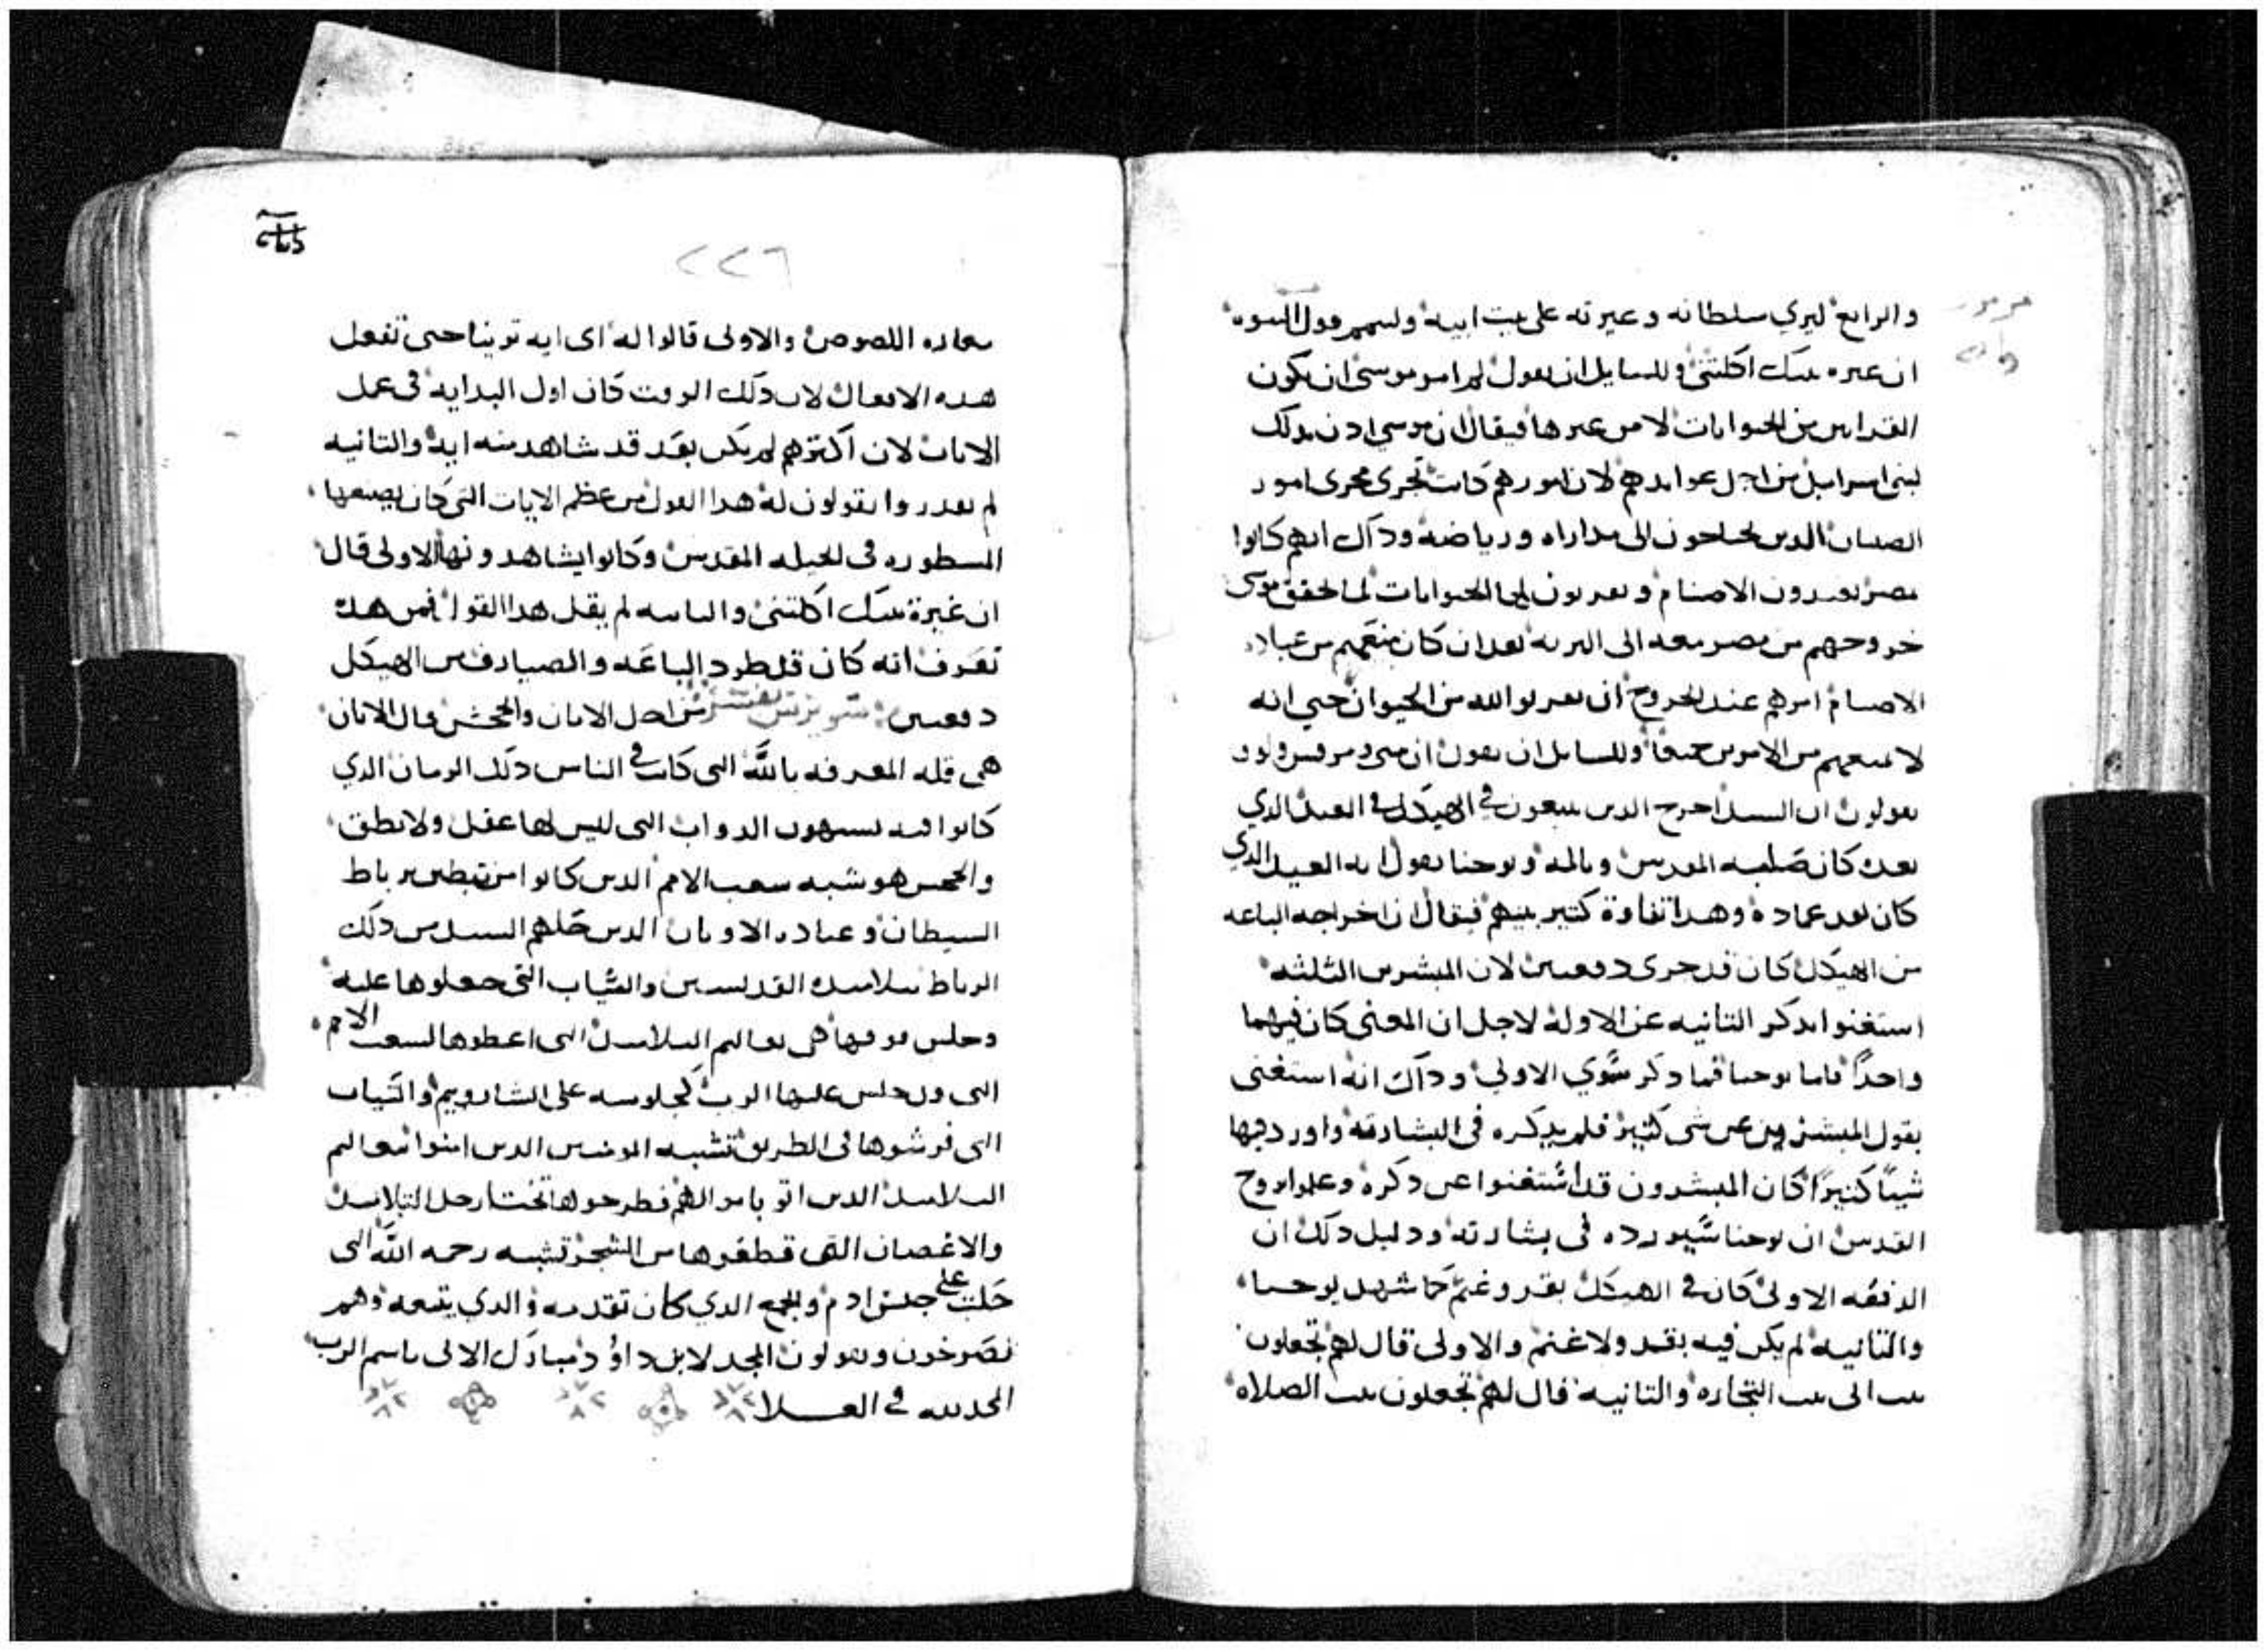 والرابع ليري سلطانه وغيرته على بيت ابيه وليتمم قول النبوه
ان غيره بيتك اكلتني وللسايل ان يقول لم امر موسى ان يكون
القرابين من الحيوانات لا من غيرها فيقال ان موسي اذن بذلك
لبني اسراييل من اجل عوايدهم لان امورهم كانت تجرى مجرى امور
الصبيان الذين يحتاجون الى مداراه ورياضه وذاك انهم كانوا
بمصر يعبدون الاصنام ويقربون لها الحيوانات لما تحقق موسى
خروجهم من مصر معه الى البريه بعد ان كان منعهم من عباده
الاصنام امرهم عند الخروج ان يقربوا لله من الحيوان حتي انه
لا يمنعهم من الامرين جميعا وللسايل ان يقول ان متى ومرقس ولوقا
يقولون ان السيد اخرج الذين يبيعون في الهيكل في العيد الذي
بعده كان صلبه المقدس والمه ويوحنا يقول انه العيد الذي
كان بعد عماده وهدا تفاوة كتير بينهم فيقال ان اخراجه الباعه
من الهيكل كان قد جرى دفعتين لان المبشرين الثلثه
استغنوا بدكر التانيه عن الاوله لاجل ان المعنى كان فيهما
واحدًا فاما يوحنا فما دكر سوي الاولي وداك انه استغنى
بقول المبشرين عن شى كتير فلم يدكره فى البشارته واورد فيها
شيًا كتيرًا كان المبشرون قد استغنوا عن دكره وعلموا بروح
القدس ان يوحنا سيورده فى بشارته ودليل دلك ان
الدفعه الاولى كان في الهيكل بقر وغنم كما شهد يوحنا
والتانيه لم يكن فيه بقر ولا غنم والاولى قال لهم تجعلون
بيت ابى بيت التجاره والتانيه قال لهم تجعلون بيت الصلاه
٢٢٦
مغاره اللصوص والاولى قالوا له اى ايه تورينا حتى تفعل
هده الافعال لان دلك الوقت كان اول البدايه فى عمل
الايات لان اكترهم لم يكن بعد قد شاهد منه ايه والتانيه
لم يقدروا يقولون له هدا القول من عظم الايات التى كان يصنعها
المسطوره فى المقدس وكانوا يشاهدونها الاولى قال
ان غيرة بيتك اكلتنى والتانيه لم يقل هدا القول فمن هده
تعرف انه كان قد طرد الباعه والصيارف من الهيكل
دفعتين من اجل الاتان والجحش قال الاتان
هى قله المعرفه بالله التى كانت في الناس دلك الزمان الدي
كانوا فيه يشبهون الدواب التى ليس لها عقل ولا نطق
والجحش هو شبه شعب الامم الدين كانوا مرتبطين برباط
الشيطان وعباده الاوتان الدين حلهم السيد من دلك
الرباط بتلاميده القديسين والتياب التى جعلوها عليه
وجلس فوقها هى تعاليم التلاميد التى اعطوها لشعب الامم
التى جلس عليها الرب كجلوسه على الشاروبيم والتياب
التى فرشوها في الطريق تشبه المومنين الدين امنوا بتعاليم
التلاميد الدين اتوا باموالهم فطرحوها تحت ارجل التلاميد
والاغصان التى قطعوها من الشجر تشبه رحمه الله التى
حلت على جنس ادم والجمع الدي كان تقدمه والدي يتبعه وهم
يصرخون ويقولون المجد لابن داوود مبارك الاتى باسم الرب
المجد لله في العلا